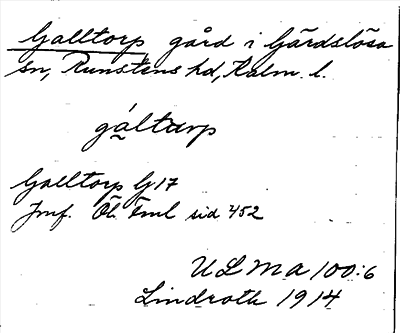 Galltorp gård i Gärdslösa
sn, Runstens hd, Kalm. l.
gáltarp
Galltorp G 17
Jmf. Öl. Fml sid 452
ULMA 100:6
Lindroth 1914